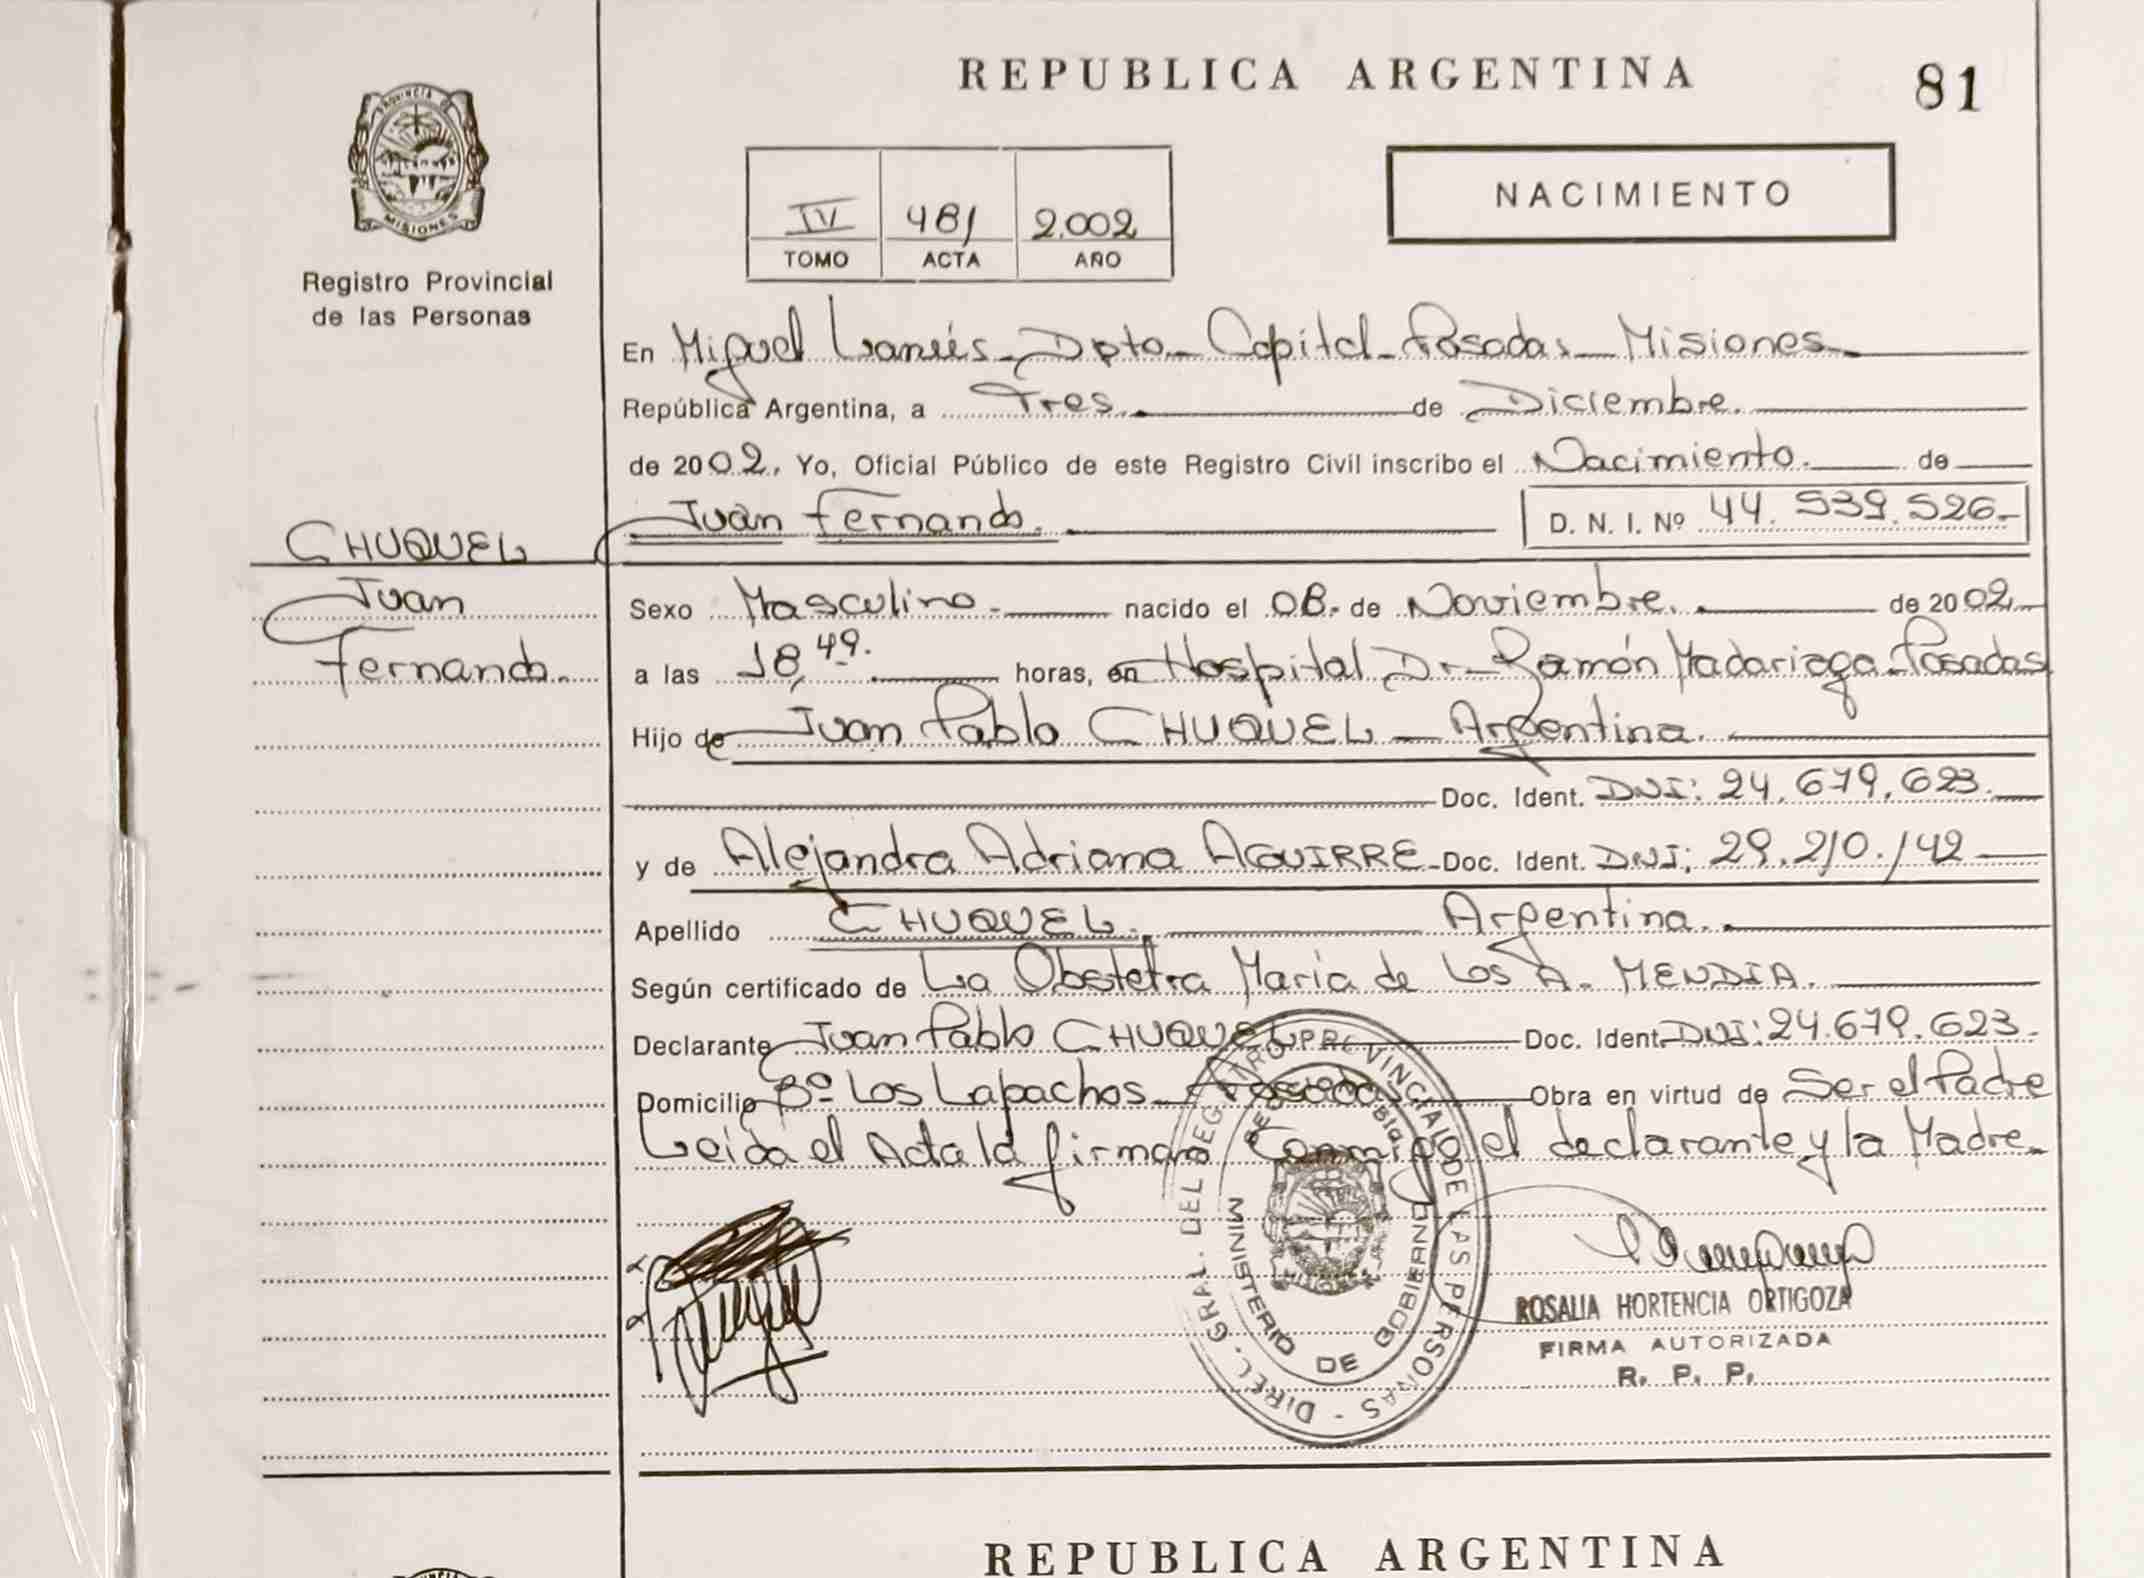 REPUBLICA ARGENTINA
81
PROVINCIA DE
MISIONES
Registro Provincial
de las Personas
NACIMIENTO
IV 481 2.002
TOMO ACTA AÑO
En Miguel Lanús - Dpto - Capital - Posadas - Misiones
República Argentina, a Tres. de Diciembre.
de 2002. Yo, Oficial Público de este Registro Civil inscribo el Nacimiento. de
Juan Fernando. D. N. I. Nº 44.539.526.-
CHUQUEL
Juan
Fernando.
Sexo Masculino. nacido el 08. de Noviembre. de 2002
a las 18,49. horas, en Hospital Dr. Ramón Madariaga Posadas
Hijo de Juan Pablo CHUQUEL - Argentina.
Doc. Ident. DNI: 24.679.623.
y de Alejandra Adriana AGUIRRE - Doc. Ident. DNI: 29.210.142
Apellido CHUQUEL. Argentina.
Según certificado de La Obstetra María de Los A. MENDIA.
Declarante Juan Pablo CHUQUEL Doc. Ident. DNI: 24.679.623.
Domicilio Bº Los Lapachos - Posadas Obra en virtud de Ser el Padre
Leída el Acta la firman Conmigo el declarante y la Madre.
DIREC. GRAL. DEL REGISTRO PROVINCIAL DE LAS PERSONAS
MINISTERIO DE GOBIERNO
ROSALIA HORTENCIA ORTIGOZA
FIRMA AUTORIZADA
R. P. P.
REPUBLICA ARGENTINA